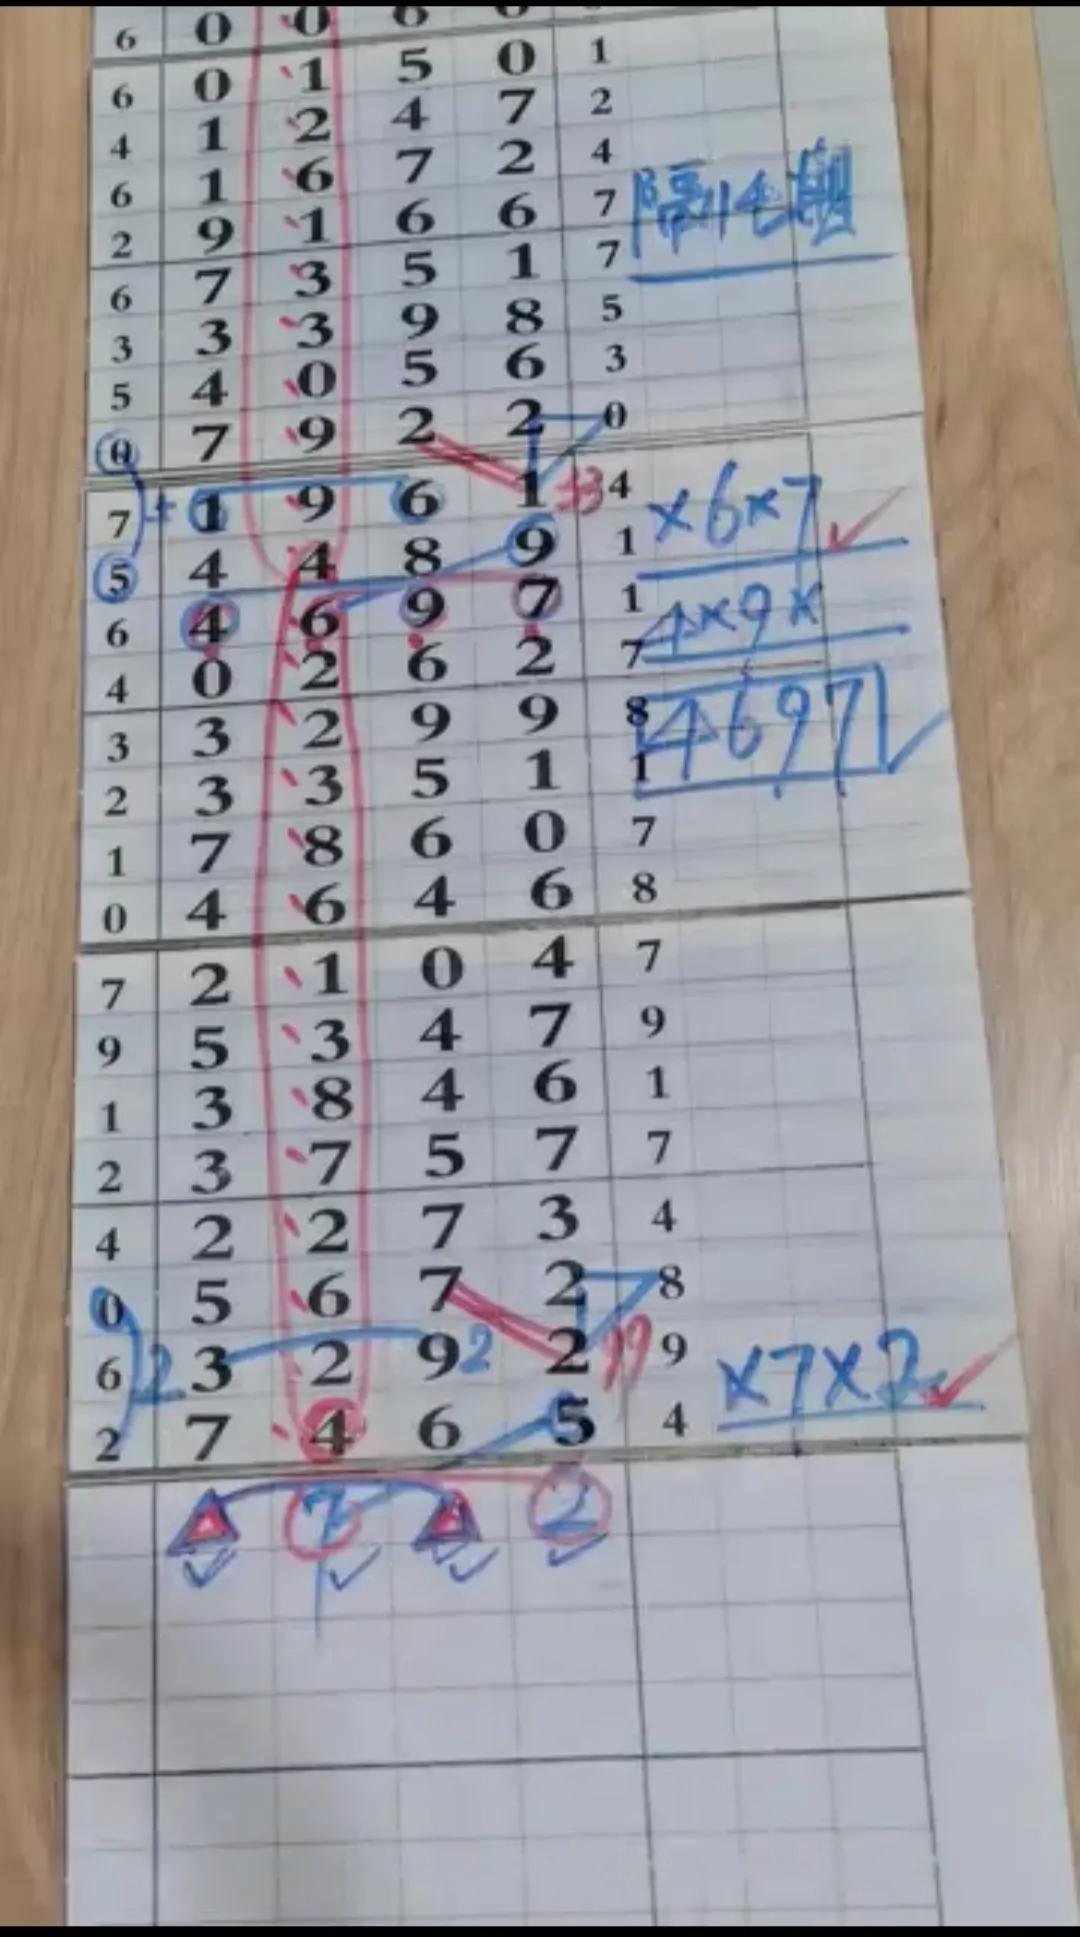 6 0 0 6
6 0 1 5 0 1
4 1 2 4 7 2
6 1 6 7 2 4
2 9 1 6 6 7 隔14期
6 7 3 5 1 7
3 3 3 9 8 5
5 4 0 5 6 3
0 7 9 2 2 0
7 1 9 6 1 33 4 ×6×7
5 4 4 8 9 1
6 4 6 9 7 1 4×9×
4 0 2 6 2 7
3 3 2 9 9 8 4697
2 3 3 5 1 1
1 7 8 6 0 7
0 4 6 4 6 8
7 2 1 0 4 7
9 5 3 4 7 9
1 3 8 4 6 1
2 3 7 5 7 7
4 2 2 7 3 4
0 5 6 7 2 8
6 2 3 2 9 2 2 99 9 ×7×2
2 7 4 6 5 4
7 2